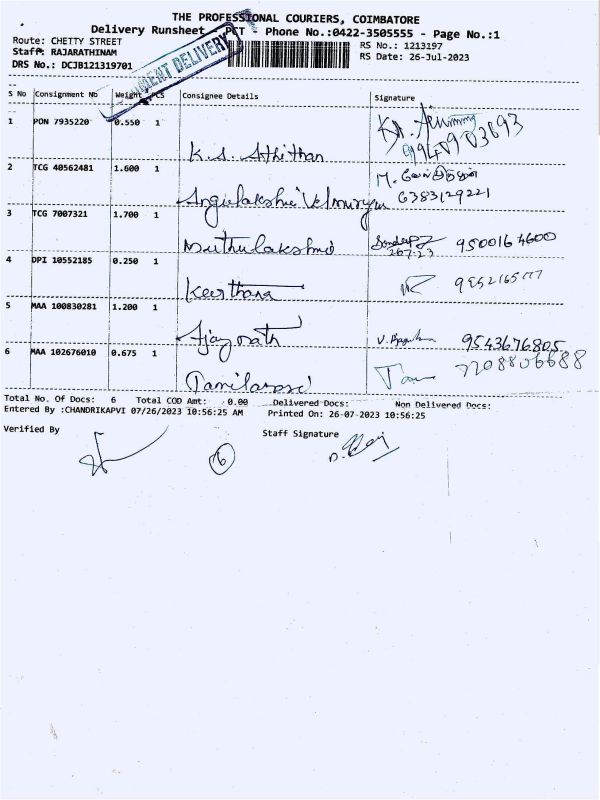 THE PROFESSIONAL COURIERS, COIMBATORE
Delivery Runsheet - PCT - Phone No.:0422-3505555 - Page No.:1
Route: CHETTY STREET
RS No.: 1213197
Staff: RAJARATHINAM
RS Date: 26-Jul-2023
DRS No.: DCJB121319701
DELIVERY
S No Consignment No Weight PCS Consignee Details Signature
1 PON 7935220 0.550 1
K.S. Athithan
2 TCG 40562481 1.600 1
6383129221
3 TCG 7007321 1.700 1
Muthulakshmi 9500164600
4 DPI 10552185 0.250 1
Keerthana
5 MAA 100830281 1.200 1
Ajaynath 9543676805
6 MAA 102676010 0.675 1
7208806688
Tamilarasi
Total No. Of Docs: 6 Total COD Amt: 0.00 Delivered Docs: Non Delivered Docs:
Entered By :CHANDRIKAPVI 07/26/2023 10:56:25 AM Printed On: 26-07-2023 10:56:25
Verified By Staff Signature
6